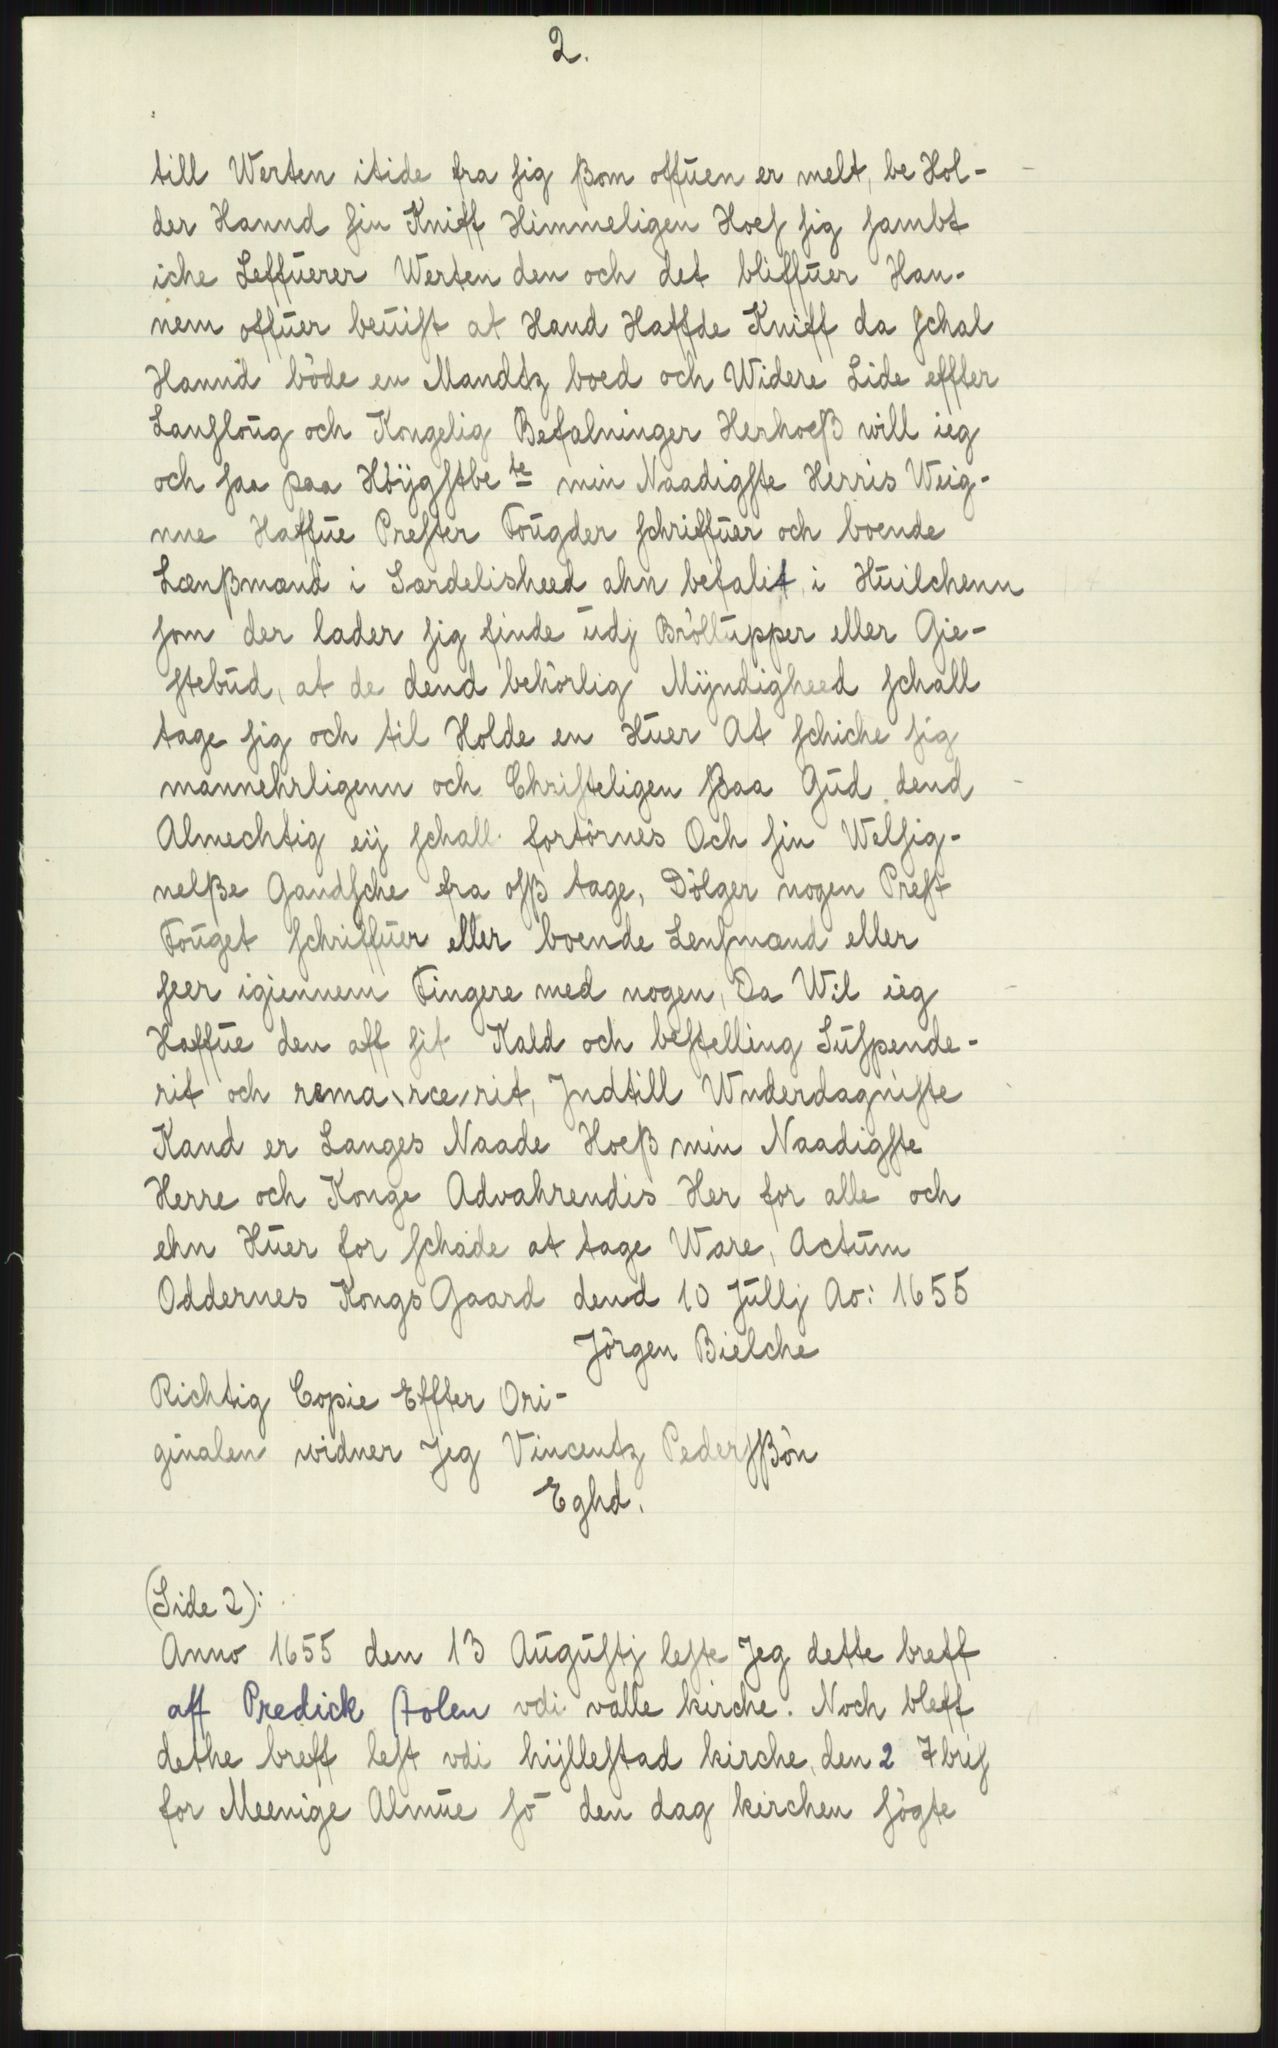 2.
till Werten itide fra sig ßom offuen er melt, be Hol-
der Hannd sin Kniff Himmeligen Hoes sig sambt
iche Leffuerer Werten den och det bliffuer Han-
nem offuer beuist at Hand Haffde Kniff da schal
Hannd böde en Mandtz boed och Widere Lide effter
Lansloug och Kongelig Befalninger Herhoeß will ieg
och saa paa Höÿgstbe te min Naadigste Herris Weig-
nne Haffue Prester Fougder schriffuer och boende
Lænßmænd i Særdelisheed ahn befalit, i Huilchenn
som der lader sig finde udj Bröllupper eller Gie-
stebud, at de dend behörlig Mÿndigheed schall
tage sig och til Holde en Huer At schiche sig
mannehrligenn och Christeligen ßaa Gud dend
Almechtig eij schall fortörnes Och sin Welsig-
nelße Gandsche fra osß tage, Dölger nogen Prest
Fouget schriffuer eller boende Lensmænd eller
seer igiennem Fingere med nogen, Da Wil ieg
Haffue den aff sit Kald och bestelling Suspende-
rit och rema\rce/rit, Indtill Wnderdagniste
Kand er Langes Naade Hoeß min Naadigste
Herre och Konge Advahrendis Her for alle och
ehn Huer for schade at tage Ware, Actum
Oddernes Kongs Gaard dend 10 Jullj Ao: 1655
Jörgen Bielche
Richtig Copie Effter Ori-
ginalen widner Jeg Vincentz Pedersßön
Eghd.
(Side 2):
Anno 1655 den 13 Augustj leste Jeg dette breff
aff Predick stolen vdi valle kirche. Noch bleff
dethe breff lest vdi hÿllestad kirche, den 2 7bris
for Meenige Almue sö den dag kirchen sögte